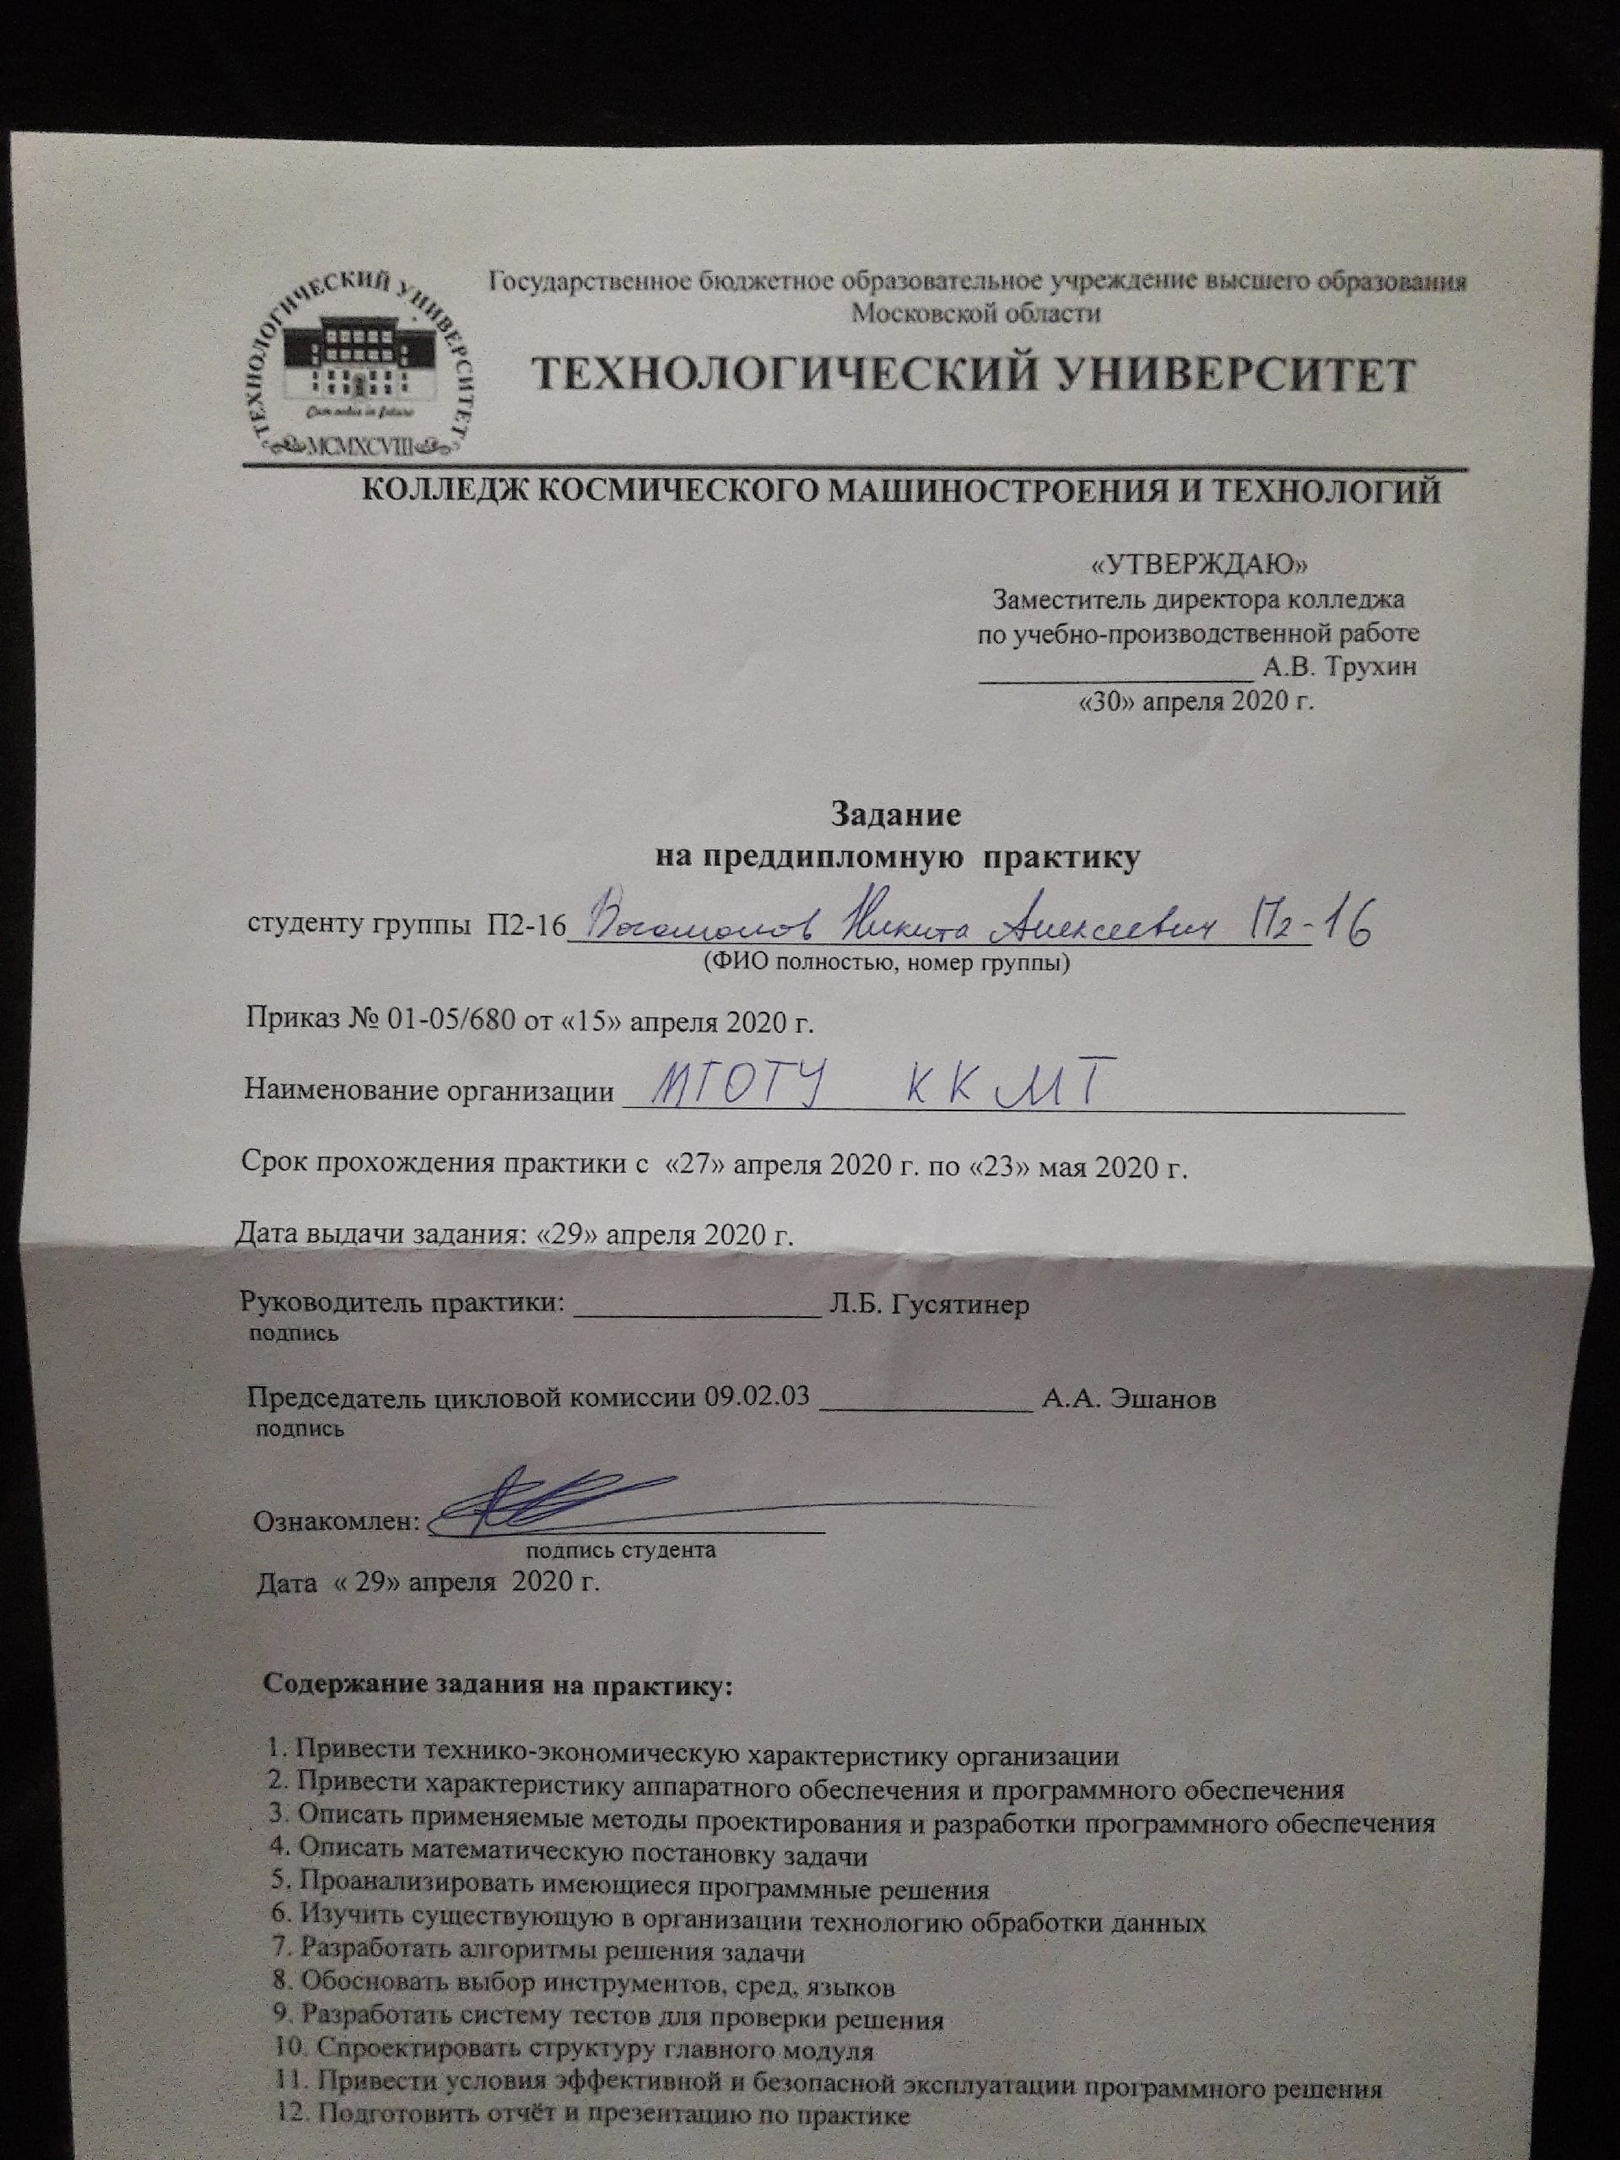 ТЕХНОЛОГИЧЕСКИЙ УНИВЕРСИТЕТ
MCMXCVIII
Государственное бюджетное образовательное учреждение высшего образования
Московской области
ТЕХНОЛОГИЧЕСКИЙ УНИВЕРСИТЕТ
КОЛЛЕДЖ КОСМИЧЕСКОГО МАШИНОСТРОЕНИЯ И ТЕХНОЛОГИЙ
«УТВЕРЖДАЮ»
Заместитель директора колледжа
по учебно-производственной работе
А.В. Трухин
«30» апреля 2020 г.
Задание
на преддипломную практику
студенту группы П2-16 Никита Алексеевич П2-16
(ФИО полностью, номер группы)
Приказ № 01-05/680 от «15» апреля 2020 г.
Наименование организации МГОТУ ККМТ
Срок прохождения практики с «27» апреля 2020 г. по «23» мая 2020 г.
Дата выдачи задания: «29» апреля 2020 г.
Руководитель практики: Л.Б. Гусятинер
подпись
Председатель цикловой комиссии 09.02.03 А.А. Эшанов
подпись
Ознакомлен:
подпись студента
Дата « 29» апреля 2020 г.
Содержание задания на практику:
1. Привести технико-экономическую характеристику организации
2. Привести характеристику аппаратного обеспечения и программного обеспечения
3. Описать применяемые методы проектирования и разработки программного обеспечения
4. Описать математическую постановку задачи
5. Проанализировать имеющиеся программные решения
6. Изучить существующую в организации технологию обработки данных
7. Разработать алгоритмы решения задачи
8. Обосновать выбор инструментов, сред, языков
9. Разработать систему тестов для проверки решения
10. Спроектировать структуру главного модуля
11. Привести условия эффективной и безопасной эксплуатации программного решения
12. Подготовить отчёт и презентацию по практике